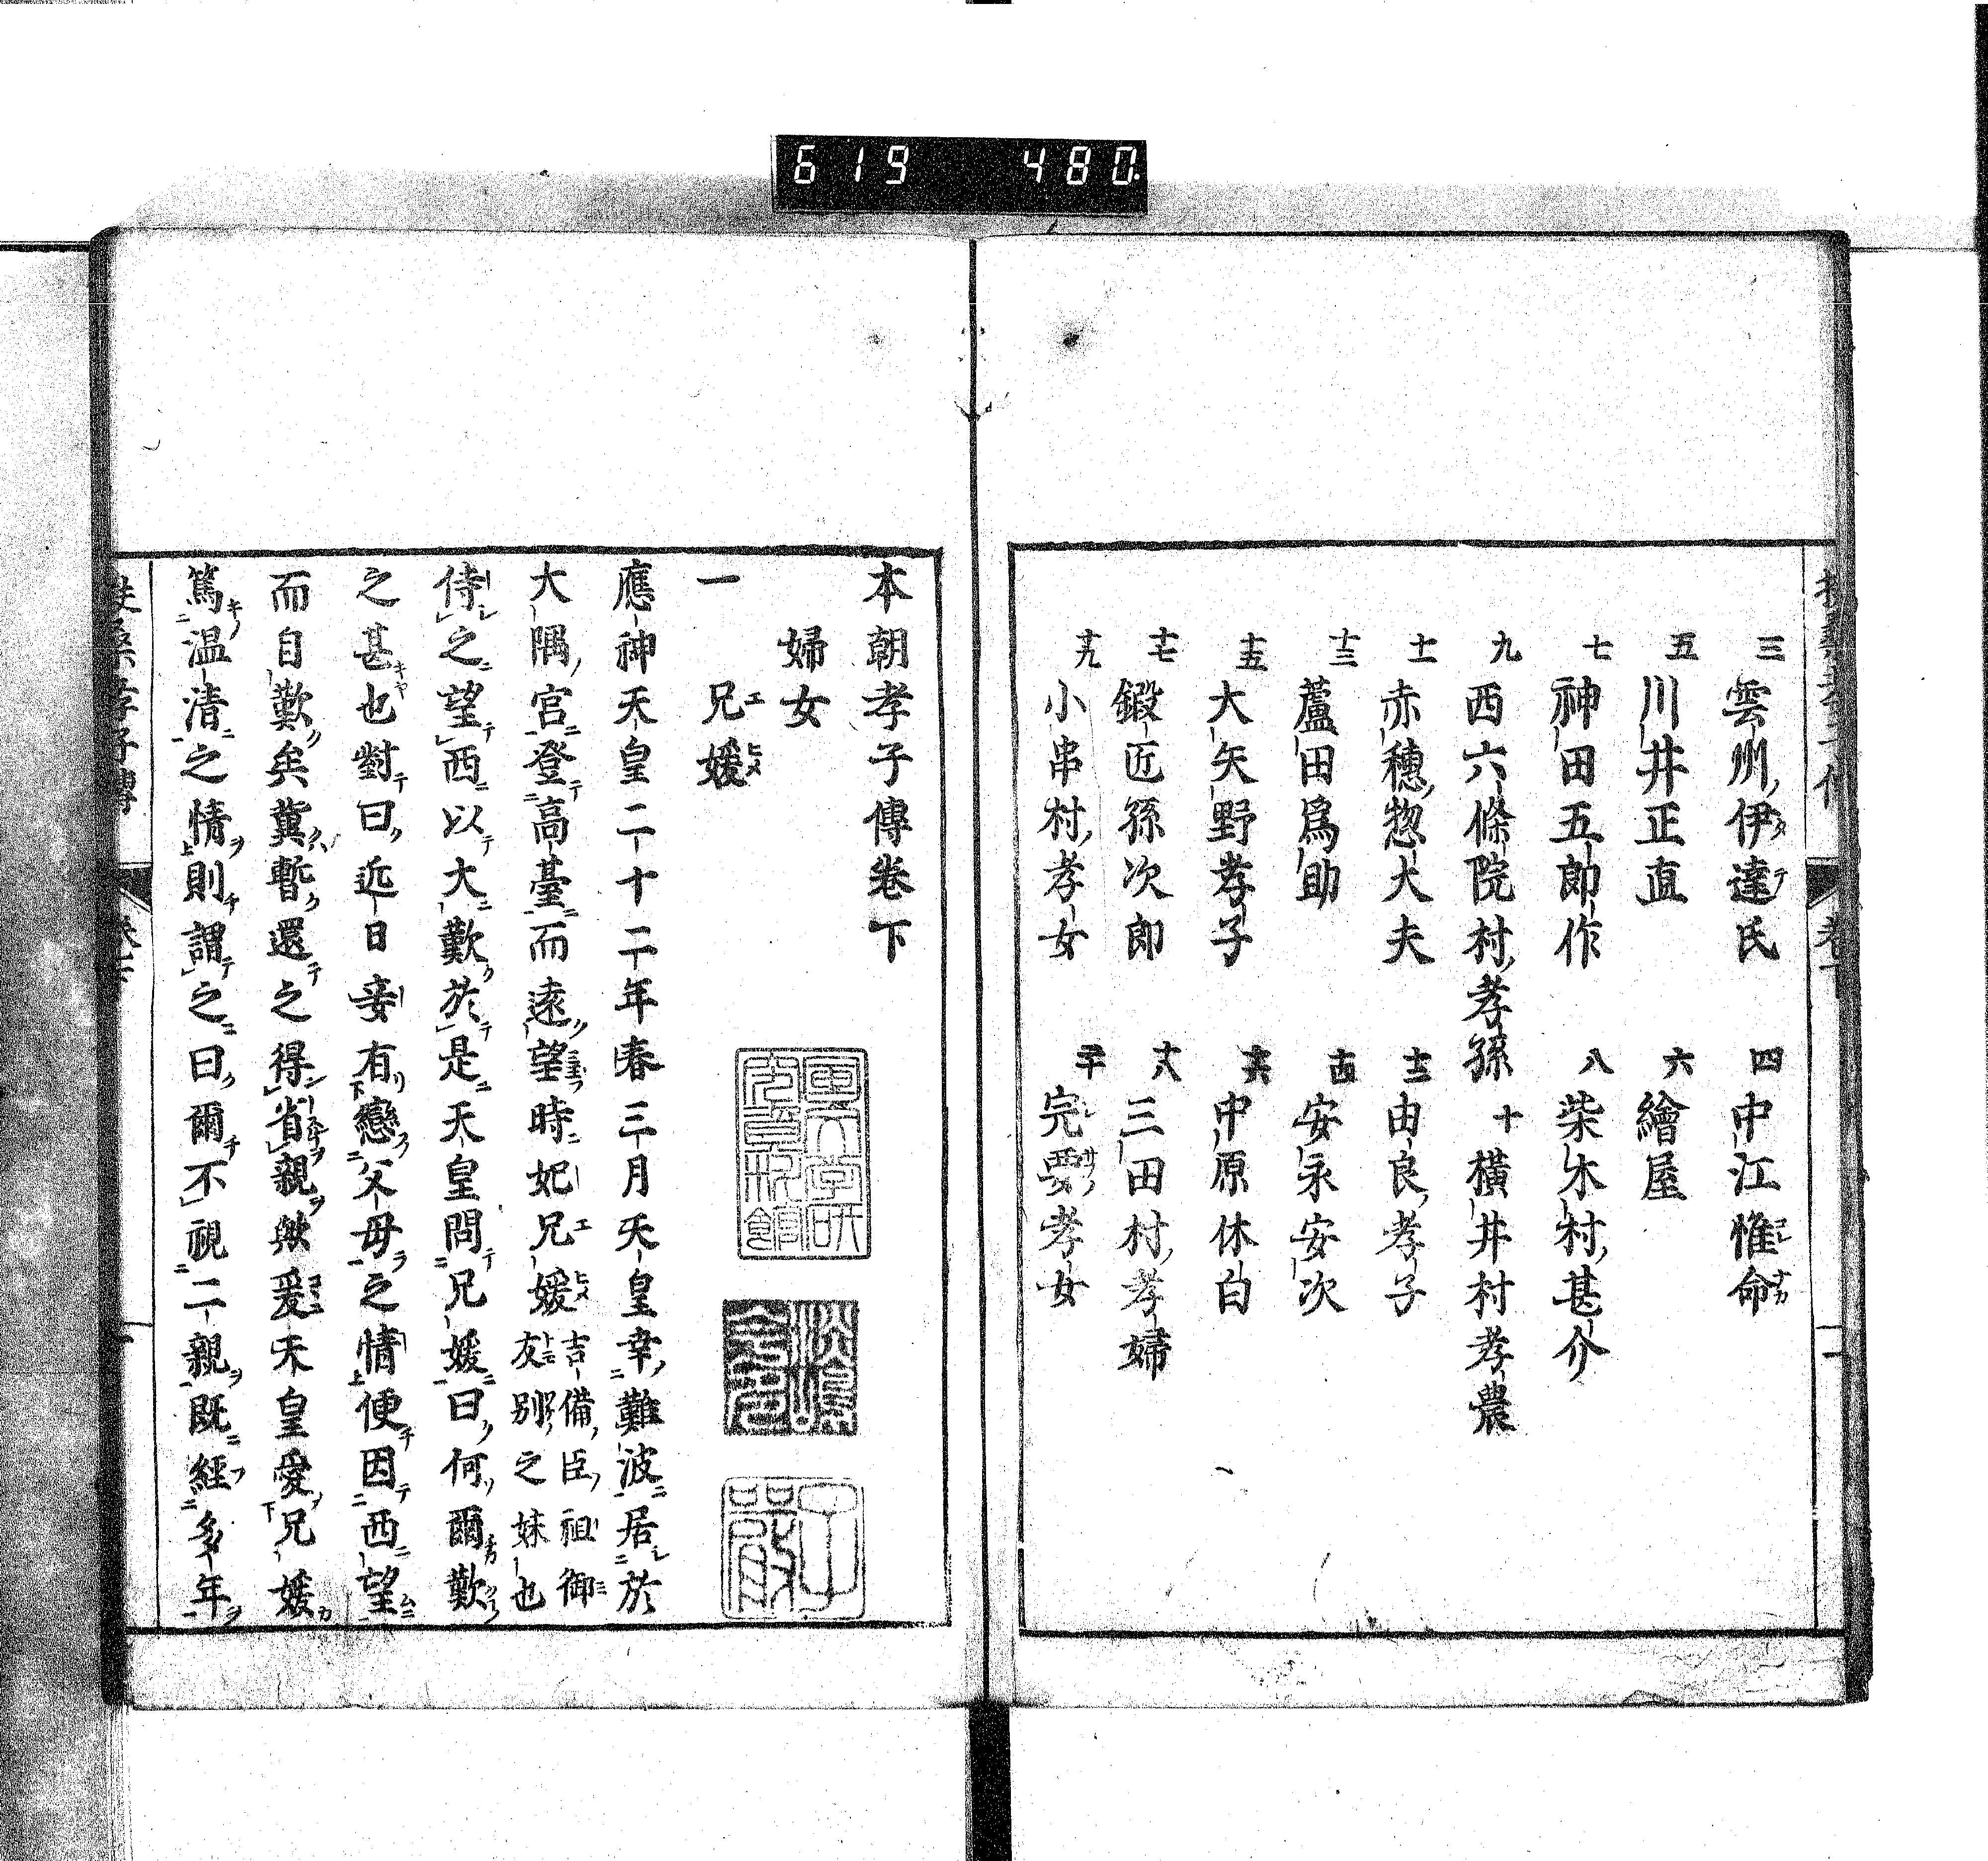 619 480.
三 雲州伊達氏 四 中江惟命
五 川井正直 六 繪屋
七 神田五郎作 八 柴木村甚介
九 西六條院村孝孫 十 橫井村孝農
十一 赤穗惣大夫 十二 由良孝子
十三 蘆田爲助 十四 安永安次
十五 大矢野孝子 十六 中原休白
十七 鍛匠孫次郎 十八 三田村孝婦
十九 小串村孝女 二十 完粟孝女
本朝孝子傳卷下
婦女
一 兄媛
應神天皇二十二年春三月天皇幸難波居於
大隅宮登高臺而遠望時妃兄媛吉備臣祖御友別之妹也
侍之望西以大歎於是天皇問兄媛曰何爾歎
之甚也對曰近日妾有戀父母之情便因西望
而自歎矣冀暫還之得省親歟爰天皇愛兄媛
篤溫凊之情則謂之曰爾不視二親既經多年